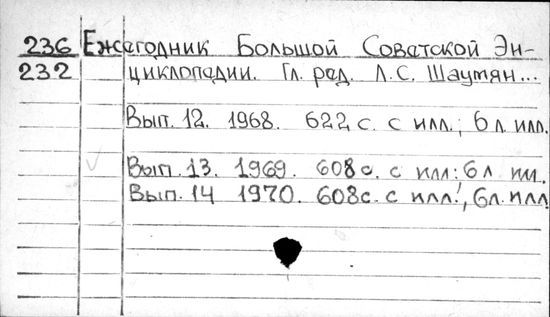 236 Ежегодник Большой Советской Эн-
232 циклопедии. Гл. ред. Л.С. Шаумян...
Вып. 12. 1968. 622 с. с илл.; 6 л. илл.
Вып. 13. 1969. 608 с. с илл: 6 л. илл.
Вып. 14 1970. 608 с. с илл!, 6 л. илл.